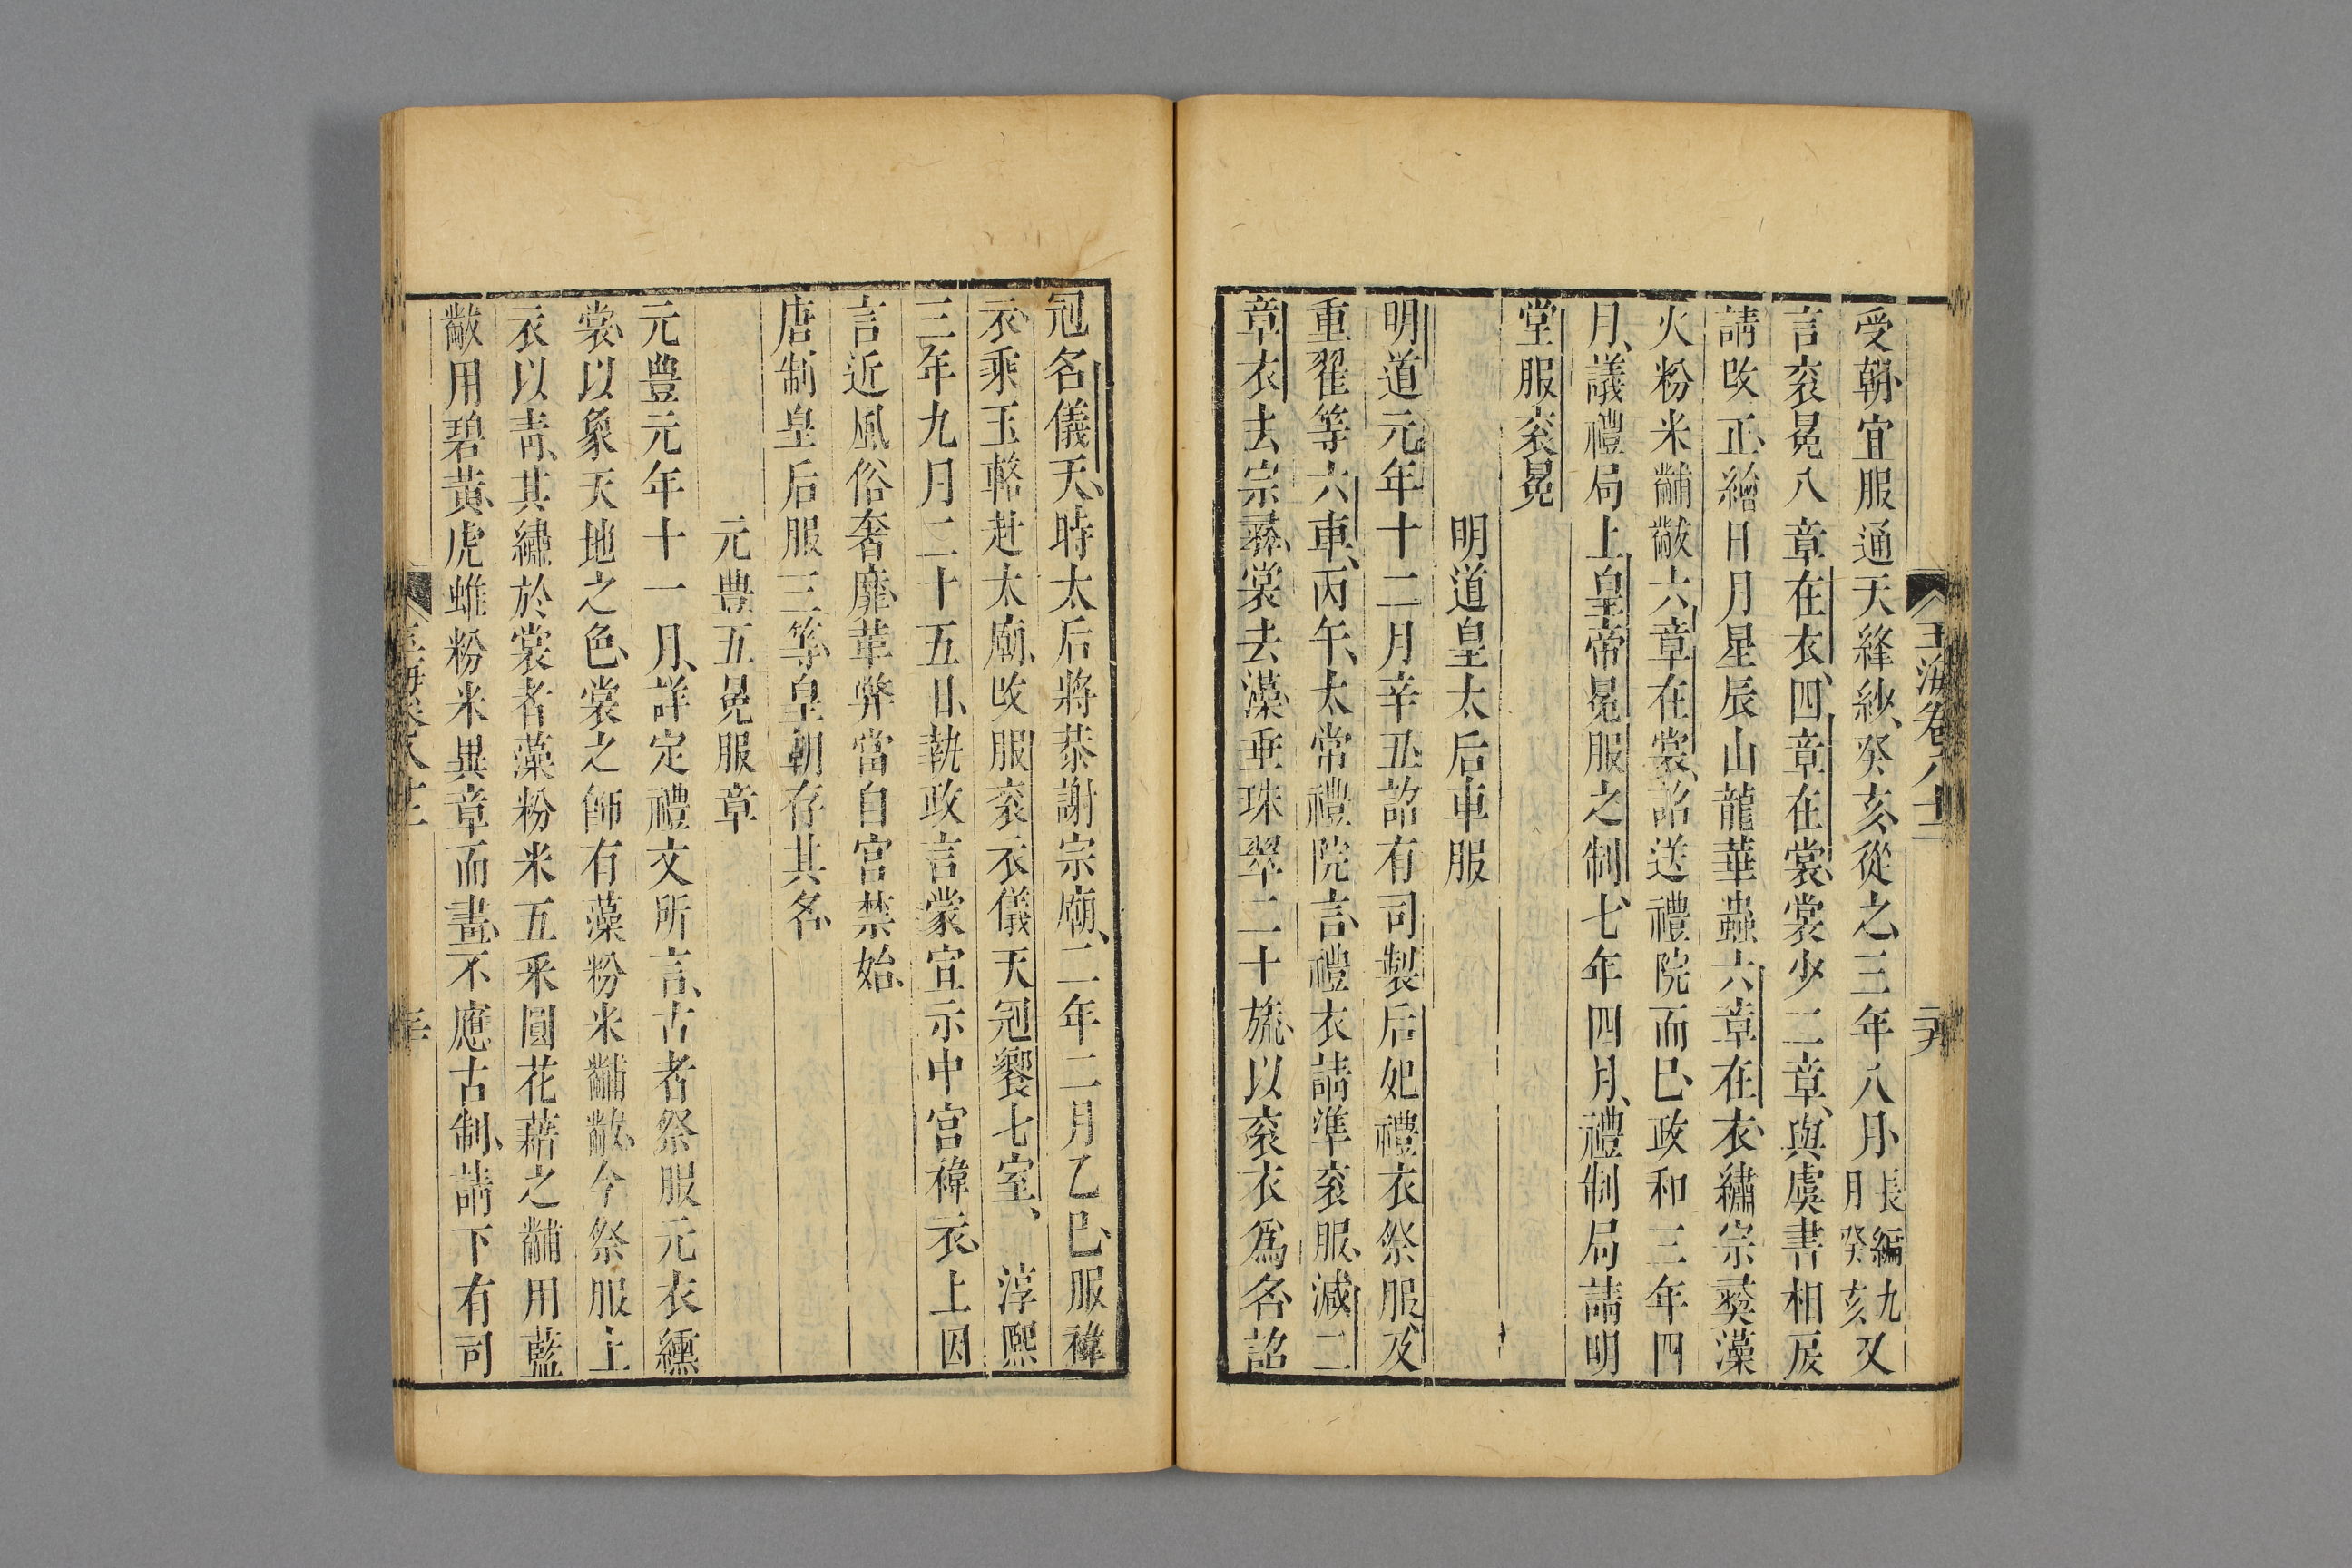 玉海卷八十二
受朝宜服通天絳紗癸亥從之三年八月長編九月癸亥又
言衮冕八章在衣四章在裳裳少二章與虞書相戾
請改正繪日月星辰山龍華蟲六章在衣繡宗彝藻
火粉米黼黻六章在裳詔送禮院而已政和三年四
月議禮局上皇帝冕服之制七年四月禮制局請明
堂服衮冕
明道皇太后車服
明道元年十二月辛丑詔有司製后妃禮衣祭服及
重翟等六車丙午太常禮院言禮衣請準衮服減二
章衣去宗彝裳去藻垂珠翠二十旒以衮衣爲名詔
冠名儀天時太后將恭謝宗廟二年二月乙巳服褘
衣乘玉輅赴太廟改服衮衣儀天冠饗七室 淳熙
三年九月二十五日執政言蒙宣示中宫褘衣上因
言近風俗奢靡革弊當自宫禁始
唐制皇后服三等皇朝存其名
元豊五冕服章
元豊元年十一月詳定禮文所言古者祭服元衣纁
裳以象天地之色裳之飾有藻粉米黼黻今祭服上
衣以靑其繡於裳者藻粉米五采圓花藉之黼用藍
黻用碧黃虎蜼粉米異章而畫不應古制請下有司